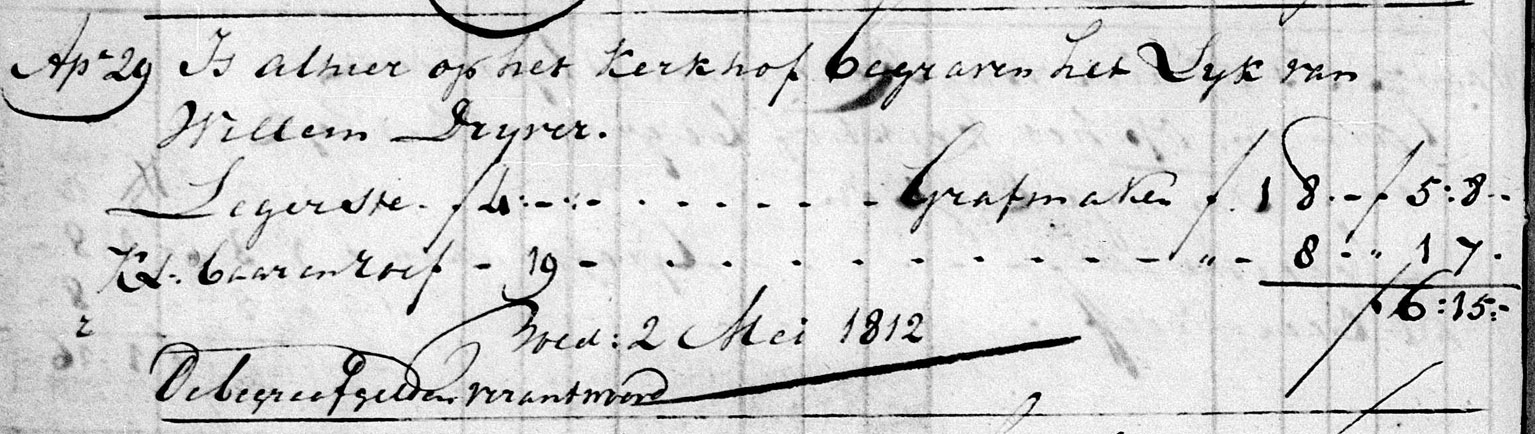 Apr 29 Is alhier op het Kerkhof begraven het Lyk van
Willem Dryver.
Legerste. f 4:-:- - - - - - - - Grafmaken f 1 8 - f 5:8 -
Kl. baarenroef - 19 - - - - - - - - - - " - 8 - " 1 7 -
f 6:15:-
vold: 2 Mei 1812
De begreefgelden verantwoord